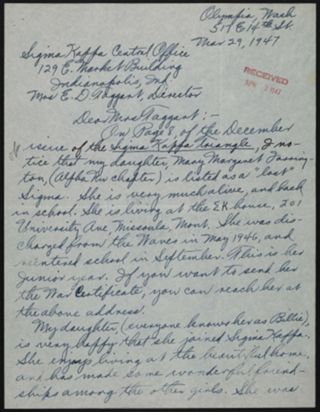 Olympia, Wash
517 E 14th St.
Mar 29, 1947
Sigma Kappa Central Office
129 E. Market Building
Indianapolis, Ind
RECEIVED
Mrs E. D. Taggart, Director
Dear Mrs Taggart :-
On Page 8, of the December
issue of the Sigma Kappa Triangle, I no-
tice that my daughter, Mary Margaret
ton, (Alpha Nu chapter) is listed as a "lost"
Sigma. She is very much alive, and back
in school. She is living at the ΣK house, 201
University Ave, Missoula, Mont. She was dis-
charged from the Waves in May 1946, and
reentered school in September. This is her
Junior year. If you want to send her
the War Certificate, you can reach her at
the above address.
My daughter, (everyone knows her as Billie),
is very happy that she joined Sigma Kappa.
She enjoys living at the beautiful home,
and has made some wonderful friend-
ships among the other girls. She was